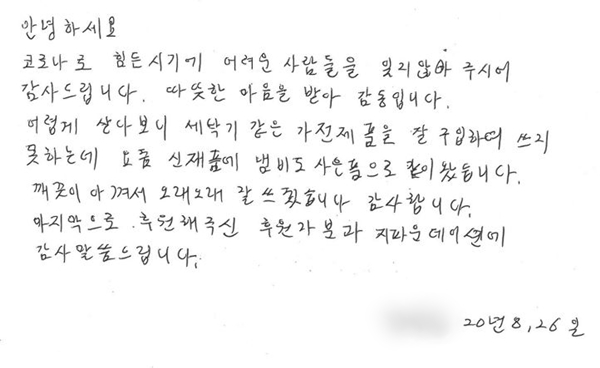 안녕하세요
코로나로 힘든시기에 어려운 사람들을 잊지않아 주시어
감사드립니다. 따뜻한 마음을 받아 감동입니다.
어렵게 산다보니 세탁기 같은 가전제품을 잘 구입하여 쓰지
못하는데 요즘 신재품에 냄비도 사은품으로 같이왔습니다.
깨끗이 아껴서 오래오래 잘 쓰겠습니다 감사합니다.
마지막으로 후원해주신 후원자분과 지파운데이션에
감사말씀드립니다.
20년 8, 26일